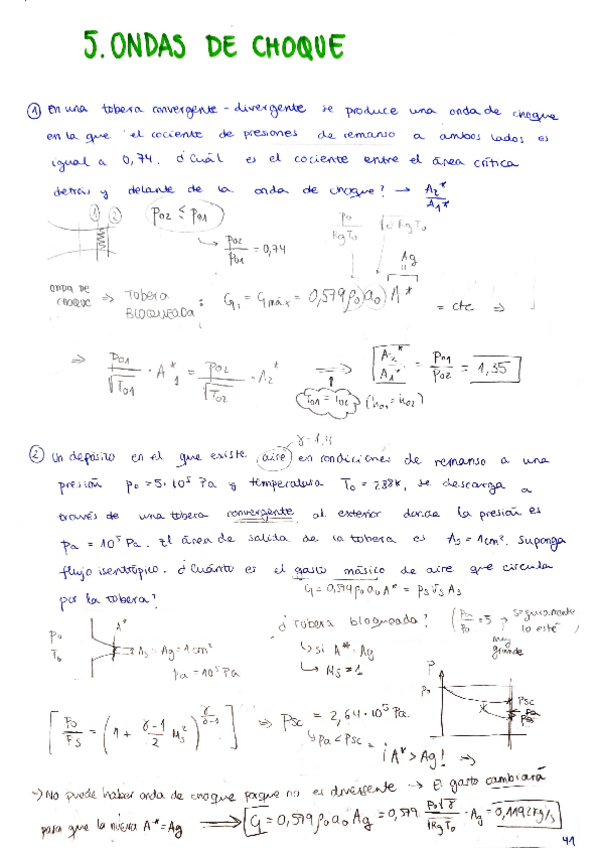 5. ONDAS DE CHOQUE
① En una tobera convergente - divergente se produce una onda de choque
en la que el cociente de presiones de remanso a ambos lados es
igual a 0,74. ¿Cuál es el cociente entre el área crítica
detrás y delante de la onda de choque? → A₂*/A₁*
① ② p₀₂ ≤ p₀₁
p₀₂/p₀₁ = 0,74
p₀/RgT₀ √γRgT₀
Ag
ONDA DE CHOQUE ⇒ TOBERA BLOQUEADA : G₁ = Gmáx = 0,579 ρ₀ a₀ A* = cte ⇒
⇒ p₀₁/√T₀₁ · A*₁ = p₀₂/√T₀₂ · A₂* ⇒ A₂*/A₁* = p₀₁/p₀₂ = 1,35
T₀₁ = T₀₂ (h₀₁ = h₀₂)
γ = 1,4
② Un depósito en el que existe aire en condiciones de remanso a una
presión p₀ = 5·10⁵ Pa y temperatura T₀ = 288K, se descarga a
través de una tobera convergente al exterior donde la presión es
pa = 10⁵ Pa. El área de salida de la tobera es As = 1cm². Suponga
flujo isentrópico. ¿Cuánto es el gasto másico de aire que circula
por la tobera?
G = 0,579 ρ₀ a₀ A* = ρs vs As
p₀ T₀ A* As = Ag = 1cm²
pa = 10⁵ Pa
¿Tobera bloqueada? = 5 → seguramente lo esté
muy grande
↳ si A* = Ag
↳ Ms = 1
[p₀/ps = (1 + γ-1/2 Ms²)^γ/γ-1] ⇒ psc = 2,64·10⁵ Pa.
↳ pa < psc = ¡A* > Ag! ⇒
P
p₀
psc
pa
→ No puede haber onda de choque porque no es divergente → El gasto cambiará
para que la nueva A* = Ag ⇒ G = 0,579 ρ₀ a₀ Ag = 0,579 p₀√γ/√RgT₀ · Ag = 0,1192 kg/s
41